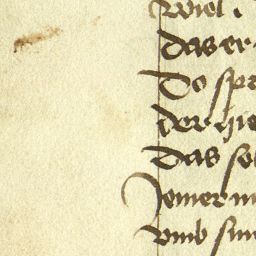 wiel i
das er
Do spr
der hie
Das so
Jemer m
vmb sin